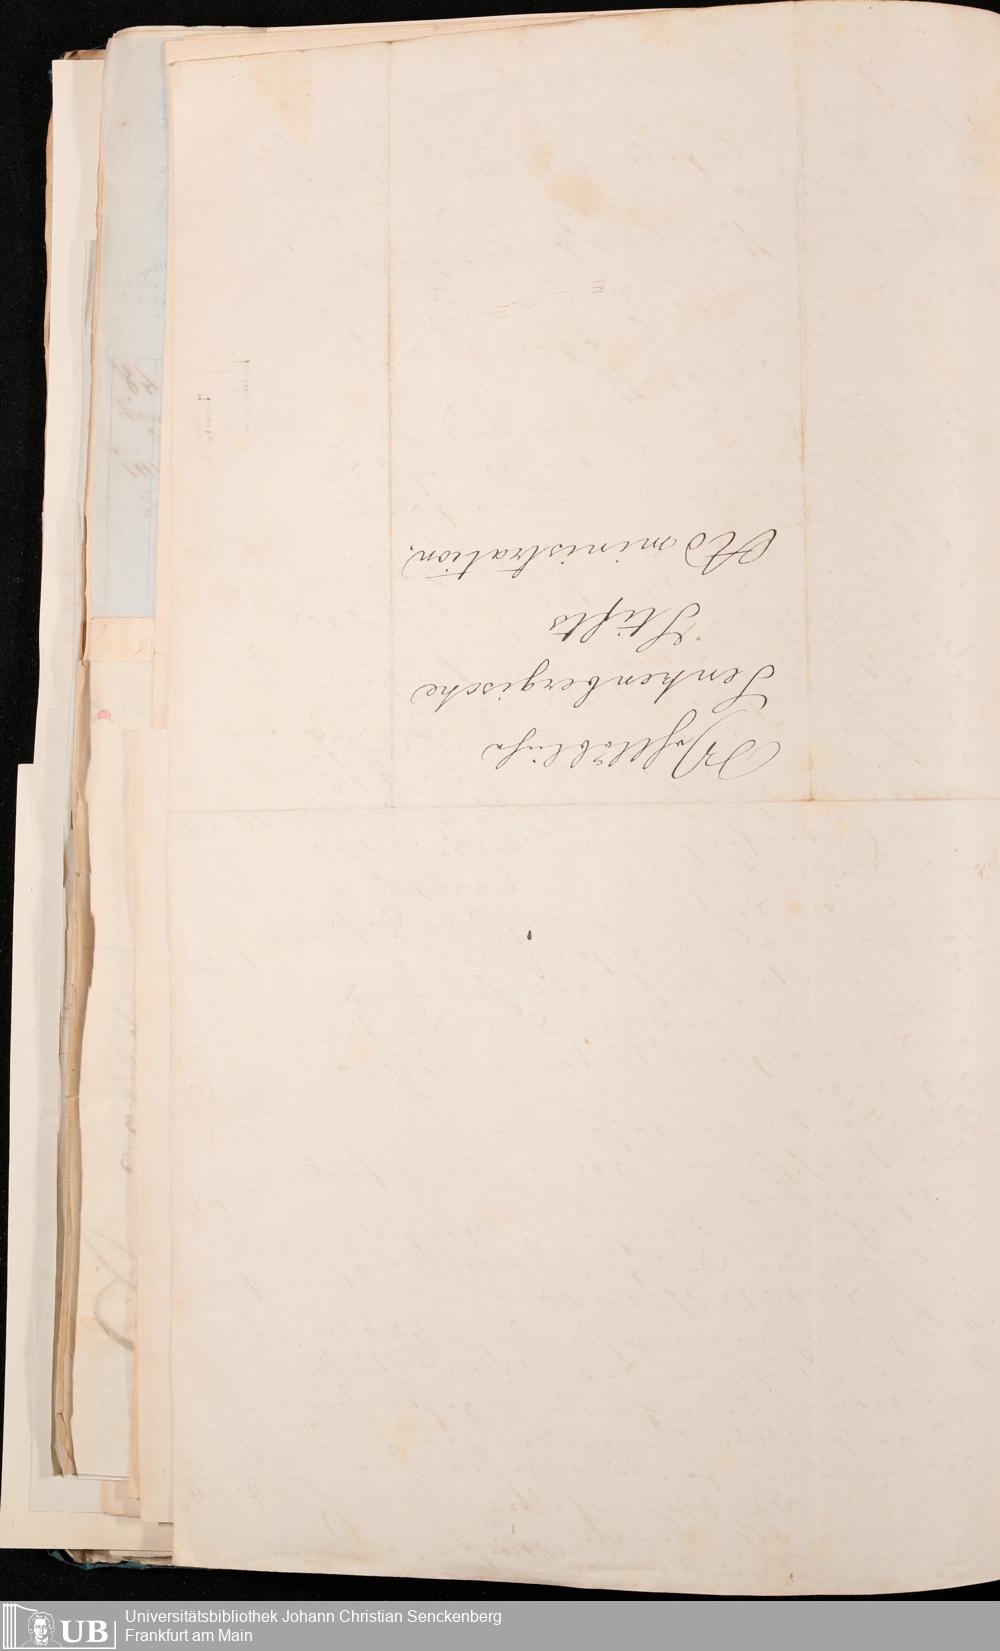 Wohllöbliche
Senkenbergische
Stifts
Administration.
Universitätsbibliothek Johann Christian Senckenberg
Frankfurt am Main
UB